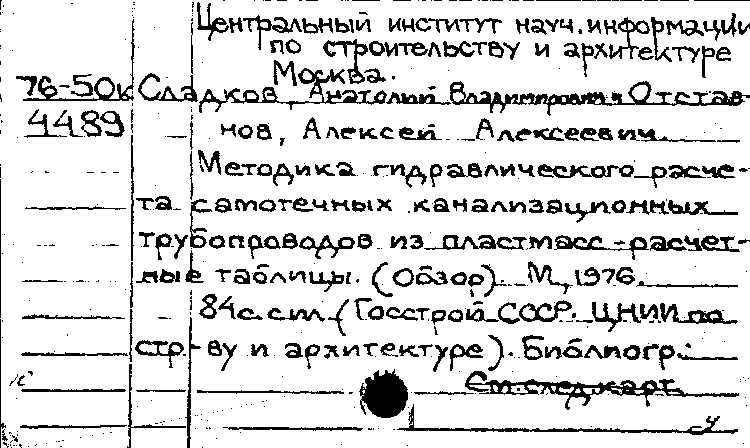 Центральный институт науч. информации
по строительству и архитектуре
Москва.
76-50к Сладков, Анатолий Владимирович, Отстав-
4489 нов, Алексей Алексеевич.
Методика гидравлического расче-
та самотечных канализационных
трубопроводов из пластмасс - расчет-
ные таблицы. (Обзор). М., 1976.
84с. с ил. (Госстрой СССР. ЦНИИ по
стр-ву и архитектуре). Библиогр.:
См. след. карт.